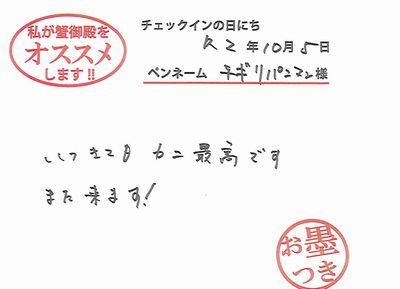 私が蟹御殿を
オススメ
します!!
チェックインの日にち
R2年10月5日
ペンネーム チギリパンマン様
いつきても カニ最高です
また来ます!
お墨
つき